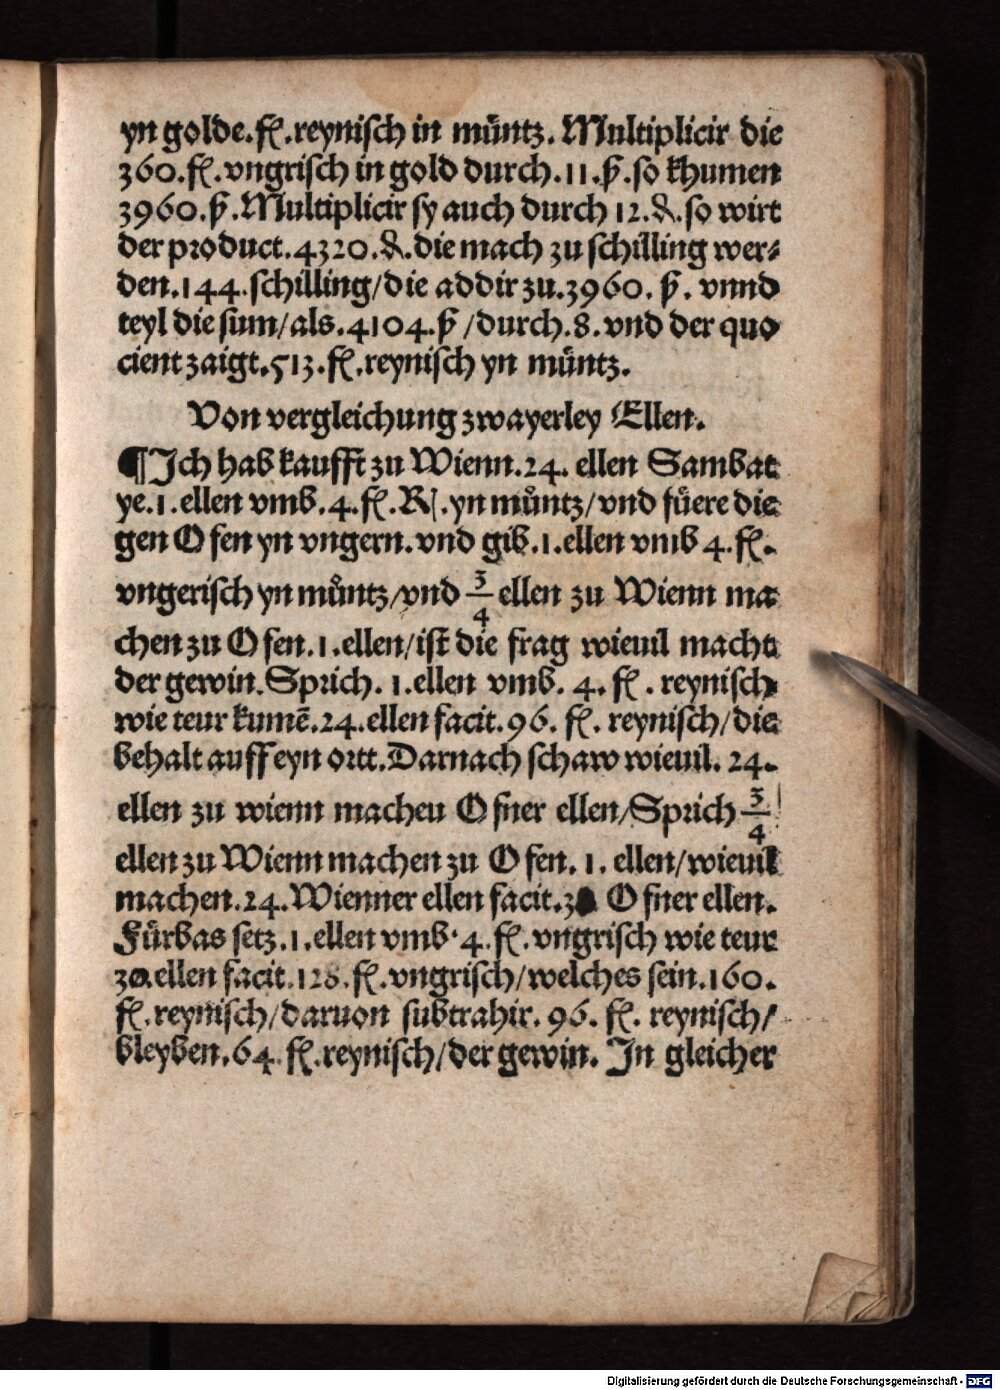 yn golde.fl.reynisch in můntz. Multiplicir die
360.fl.vngrisch in gold durch.11.ß.so khumen
3960.ß.Multiplicir sy auch durch 12.₰.so wirt
der product.4320.₰.die mach zu schilling wer⸗
den.144.schilling/die addir zu.3960.ß. vnnd
teyl die sum/als.4104.ß/durch.8.vnd der quo
cient zaigt.513.fl.reynisch yn müntz.
Von vergleichung zwayerley Ellen.
¶Ich hab kaufft zu Wienn.24. ellen Sambat
ye.1.ellen vmb.4.fl.R.yn můntz/vnd fůere die
gen Ofen yn vngern.vnd gib.1.ellen vmb 4.fl.
vngerisch yn můntz/vnd 3/4 ellen zu Wienn ma
chen zu Ofen.1.ellen/ist die frag wieuil macht
der gewin.Sprich. 1.ellen vmb. 4. fl. reynisch
wie teur kumē.24.ellen facit.96. fl. reynisch/die
behalt auff eyn ortt.Darnach schaw wieuil. 24.
ellen zu wienn machen Ofner ellen/Sprich 3/4
ellen zu Wienn machen zu Ofen. 1. ellen/wieuil
machen.24.Wienner ellen facit. Ofner ellen.
Fůrbas setz.1.ellen vmb.4.fl.vngrisch wie teur
ellen facit.128.fl.vngrisch/welches sein.160.
fl.reynisch/daruon subtrahir.96. fl. reynisch/
bleyben.64.fl.reynisch/der gewin. In gleicher
Digitalisierung gefördert durch die Deutsche Forschungsgemeinschaft - DFG